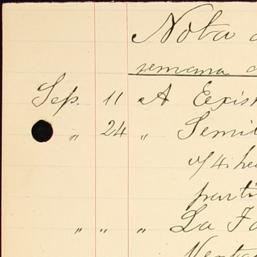 Nota
semana
Sep. 11 A Exis
" 24 " Semi
v/ 4.
parti
" " " La Fa
Venta